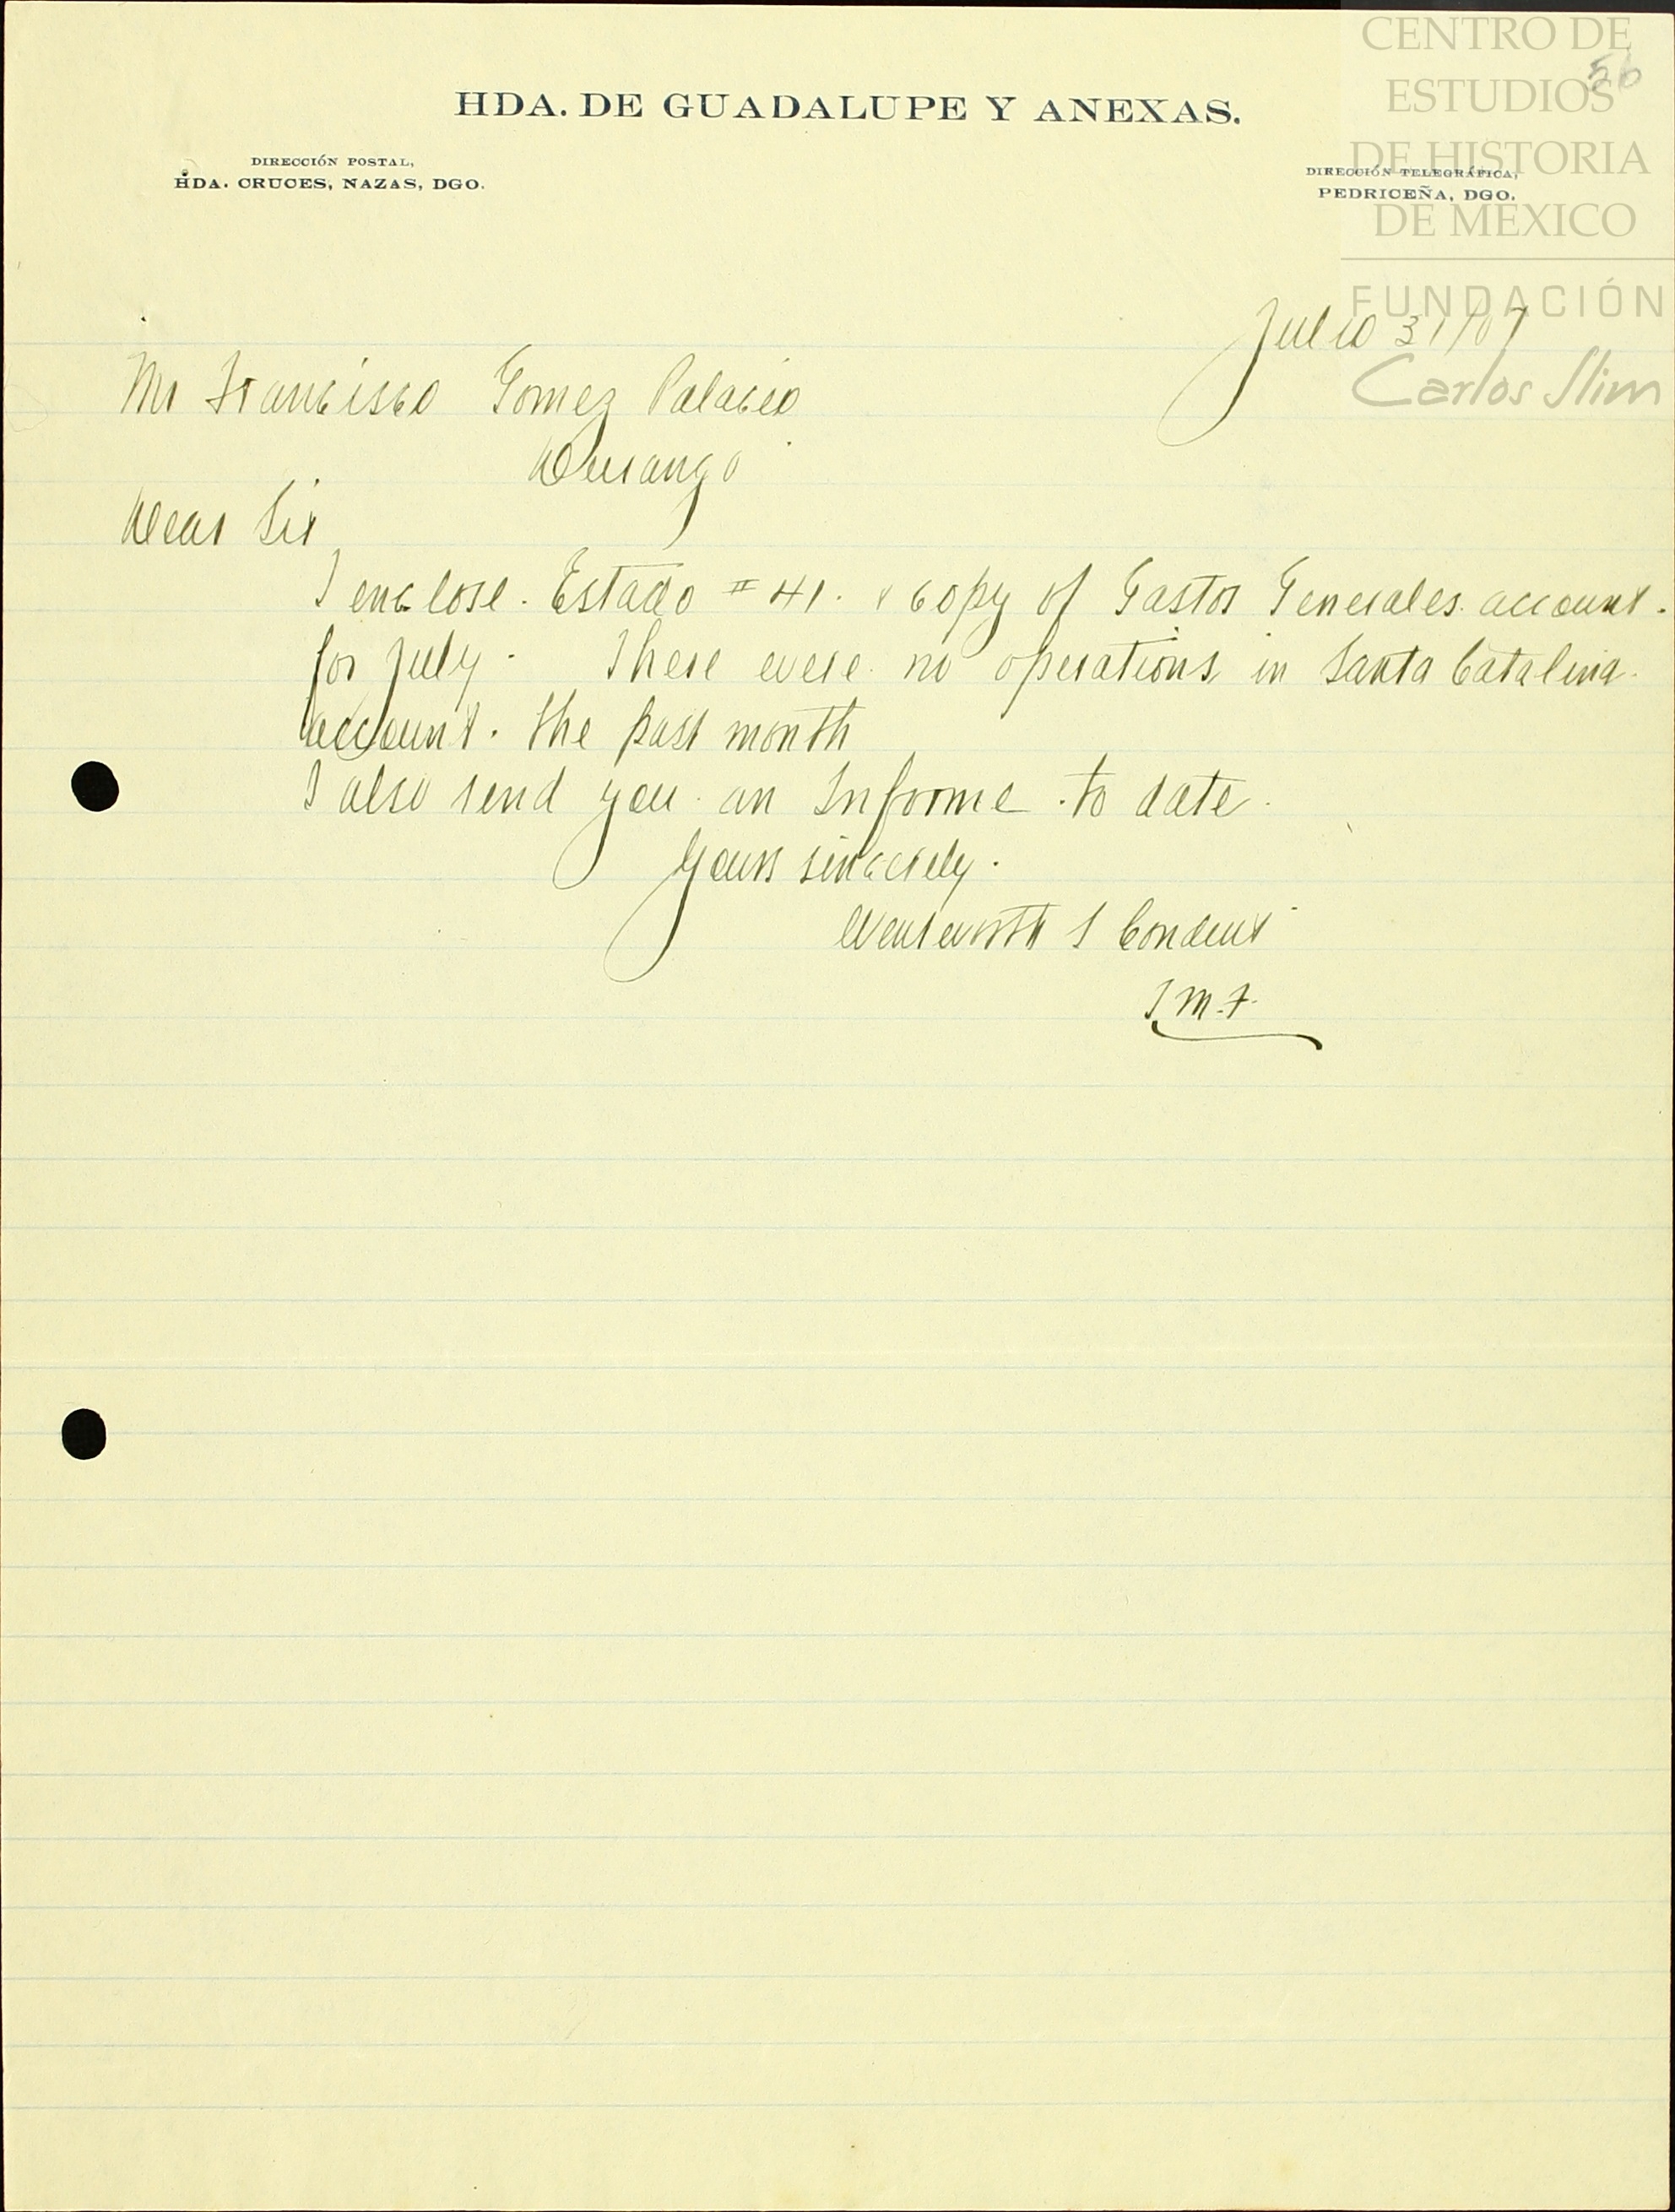 CENTRO DE
ESTUDIOS
DE HISTORIA
DE MEXICO
FUNDACIÓN
Carlos Slim
56
HDA. DE GUADALUPE Y ANEXAS.
DIRECCIÓN POSTAL,
HDA. CRUCES, NAZAS, DGO.
DIRECCIÓN TELEGRÁFICA,
PEDRICEÑA, DGO.
Julio 31/07
Mr Francisco Gomez Palacio
Durango
Dear Sir
I enclose. Estado #41. & copy of Gastos Generales account.
for July. There were no operations in Santa Catalina
account. the past month
I also send you an Informe to date.
Yours sincerely.
Wentworth S Conduit
J.M.F.